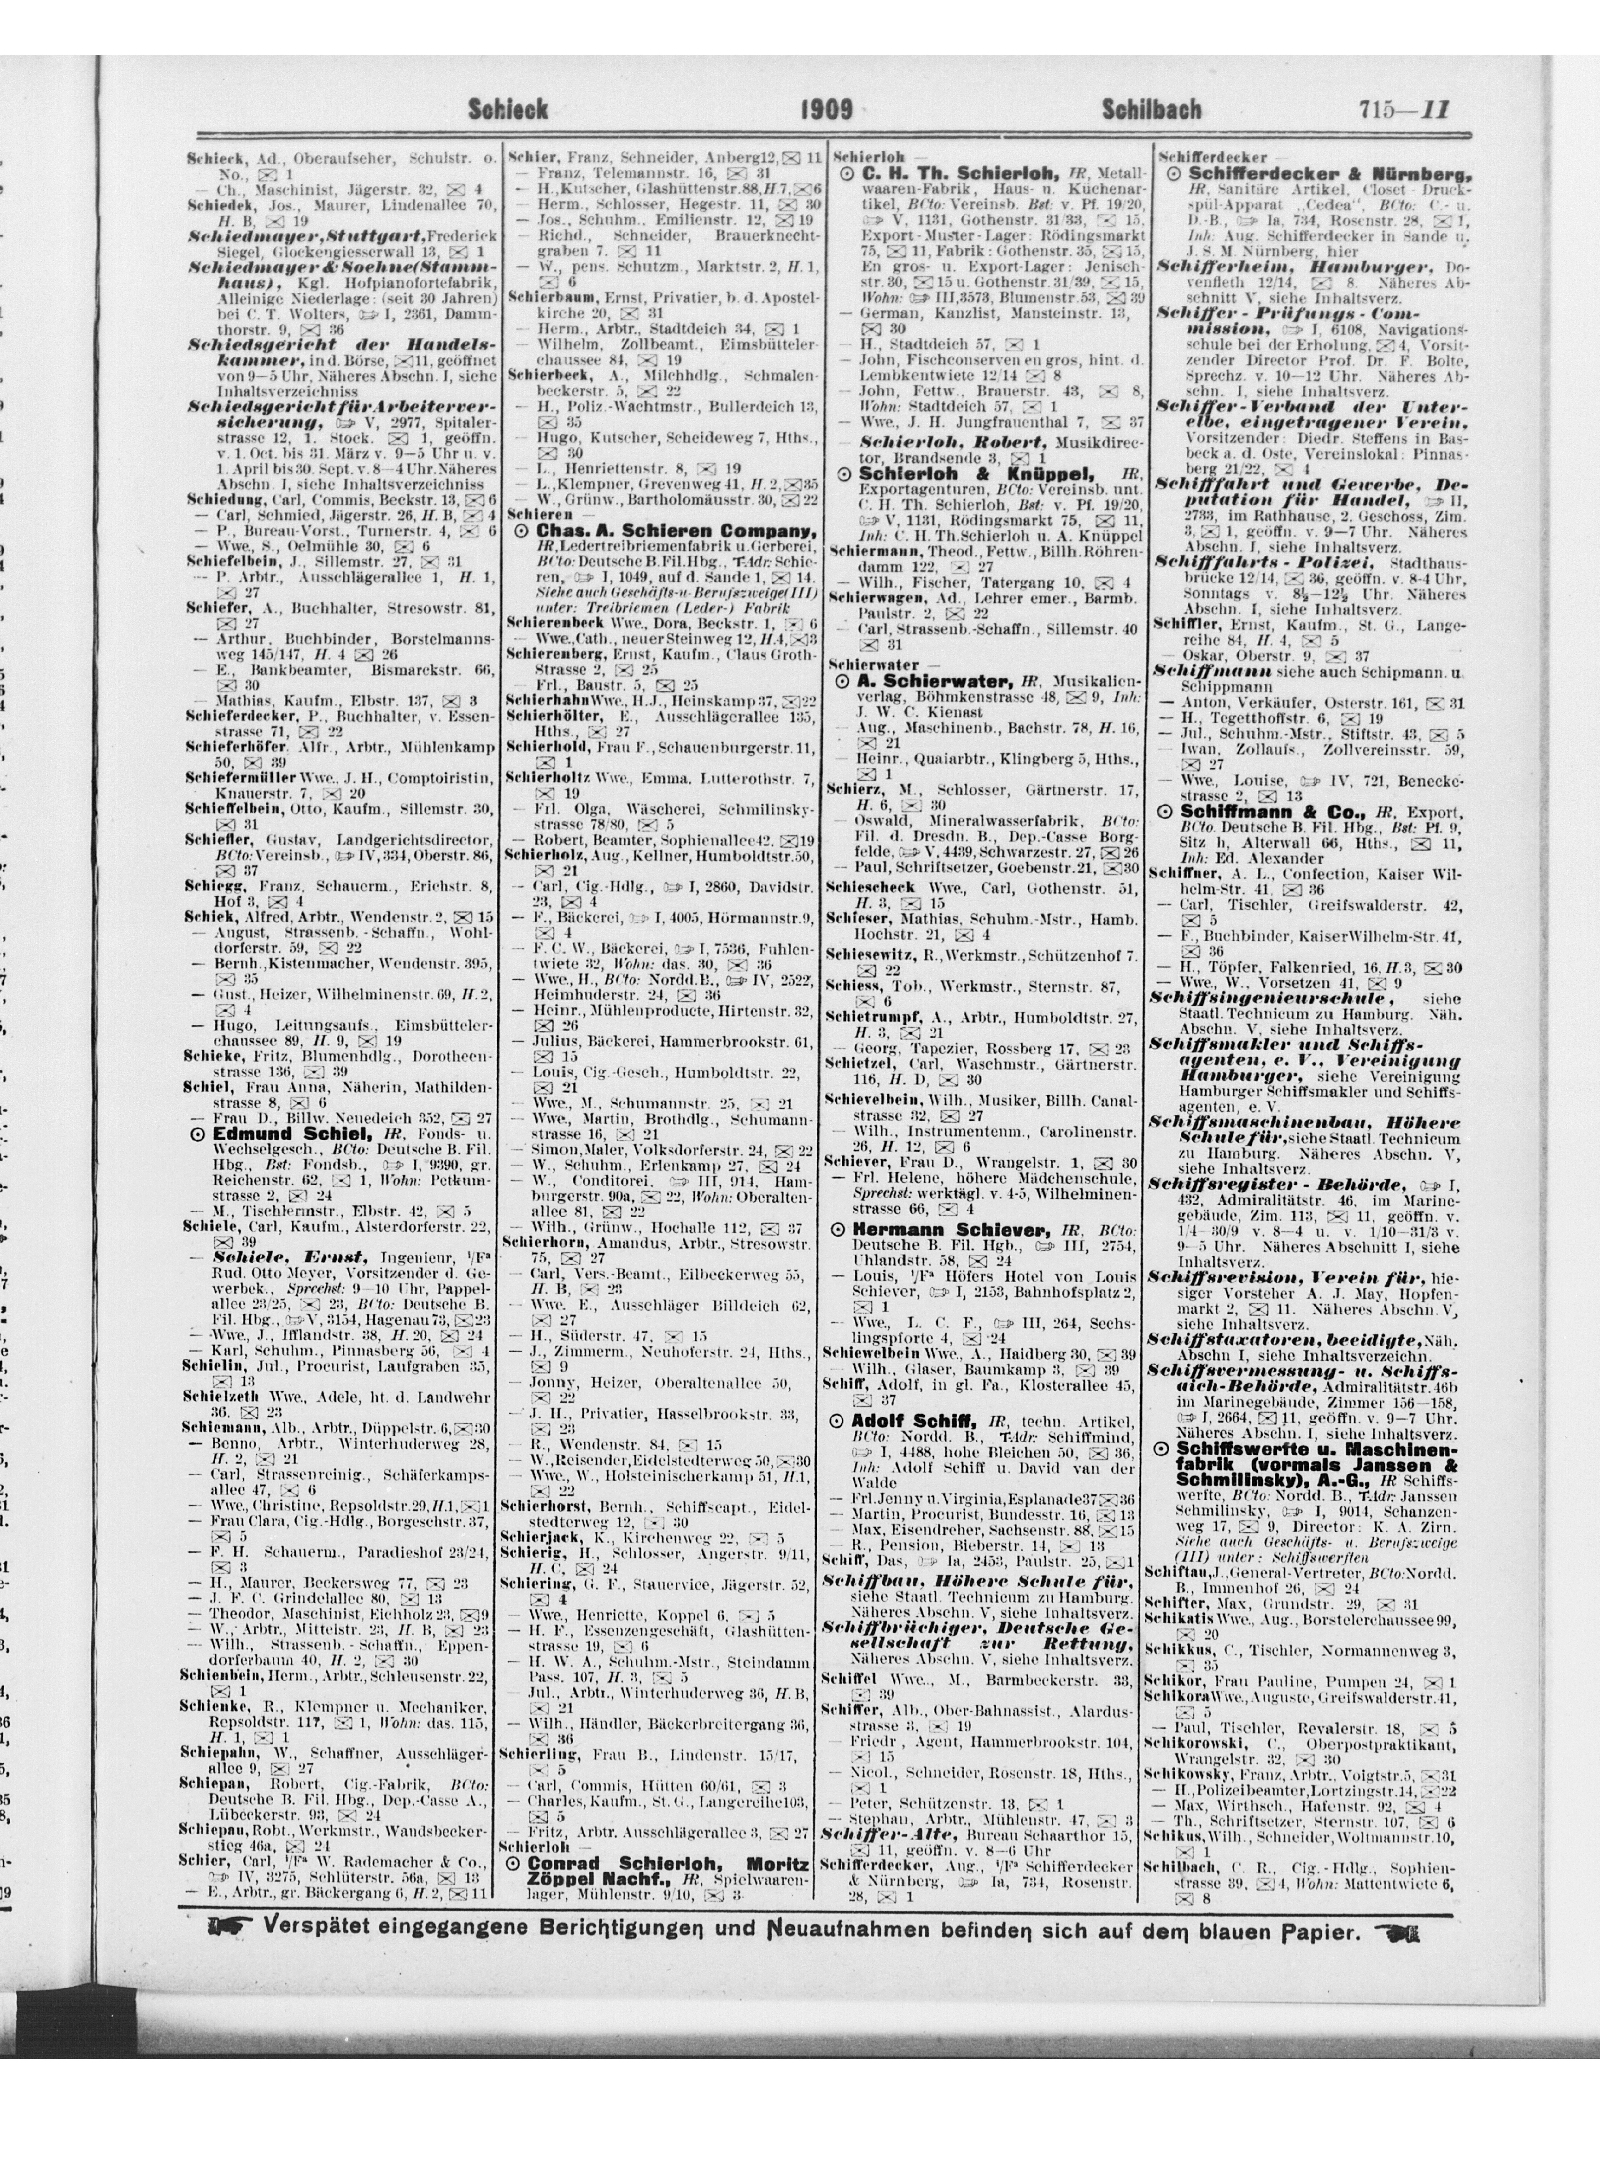 Schieck 1909 Schilbach 715—II
Schieck, Ad., Oberaufseher, Schulstr. o.
No., ✉ 1
— Ch., Maschinist, Jägerstr. 32, ✉ 4
Schiedek, Jos., Maurer, Lindenallee 70,
H. B, ✉ 19
Schiedmayer, Stuttgart, Frederick
Siegel, Glockengiesserwall 13, ✉ 1
Schiedmayer & Soehne (Stamm-
haus), Kgl. Hofpianofortefabrik,
Alleinige Niederlage: (seit 30 Jahren)
bei C. T. Wolters, I, 2361, Damm-
thorstr. 9, ✉ 36
Schiedsgericht der Handels-
kammer, in d. Börse, ✉ 11, geöffnet
von 9—5 Uhr, Näheres Abschn. I, siehe
Inhaltsverzeichniss
Schiedsgericht für Arbeiterver-
sicherung, V, 2977, Spitaler-
strasse 12, 1. Stock. ✉ 1, geöffn.
v. 1. Oct. bis 31. März v. 9—5 Uhr u. v.
1. April bis 30. Sept. v. 8—4 Uhr. Näheres
Abschn. I, siehe Inhaltsverzeichniss
Schiedung, Carl, Commis, Beckstr. 13, ✉ 6
— Carl, Schmied, Jägerstr. 26, H. B, ✉ 4
— P., Bureau-Vorst., Turnerstr. 4, ✉ 6
— Wwe., S., Oelmühle 30, ✉ 6
Schiefelbein, J., Sillemstr. 27, ✉ 31
— P. Arbtr., Ausschlägerallee 1, H. 1,
✉ 27
Schiefer, A., Buchhalter, Stresowstr. 81,
✉ 27
— Arthur, Buchbinder, Borstelmanns-
weg 145/147, H. 4 ✉ 26
— E., Bankbeamter, Bismarckstr. 66,
✉ 30
— Mathias, Kaufm., Elbstr. 137, ✉ 3
Schieferdecker, P., Buchhalter, v. Essen-
strasse 71, ✉ 22
Schieferhöfer, Alfr., Arbtr., Mühlenkamp
50, ✉ 39
Schiefermüller Wwe., J. H., Comptoiristin,
Knauerstr. 7, ✉ 20
Schieffelbein, Otto, Kaufm., Sillemstr. 30,
✉ 31
Schiefler, Gustav, Landgerichtsdirector,
BCto: Vereinsb., IV, 334, Oberstr. 86,
✉ 37
Schiegg, Franz, Schauerm., Erichstr. 8,
Hof 3, ✉ 4
Schiek, Alfred, Arbtr., Wendenstr. 2, ✉ 15
— August, Strassenb.-Schaffn., Wohl-
dorferstr. 59, ✉ 22
— Bernh., Kistenmacher, Wendenstr. 395,
✉ 35
— Gust., Heizer, Wilhelminenstr. 69, H. 2,
✉ 4
— Hugo, Leitungsaufs., Eimsbütteler-
chaussee 89, H. 9, ✉ 19
Schieke, Fritz, Blumenhdlg., Dorotheen-
strasse 136, ✉ 39
Schiel, Frau Anna, Näherin, Mathilden-
strasse 8, ✉ 6
— Frau D., Billw. Neuedeich 352, ✉ 27
⊙ Edmund Schiel, HR, Fonds- u.
Wechselgesch., BCto: Deutsche B. Fil.
Hbg., Bst: Fondsb., I, 9390, gr.
Reichenstr. 62, ✉ 1, Wohn: Petkum-
strasse 2, ✉ 24
— M., Tischlermstr., Elbstr. 42, ✉ 5
Schiele, Carl, Kaufm., Alsterdorferstr. 22,
✉ 39
— Schiele, Ernst, Ingenieur, i/Fa
Rud. Otto Meyer, Vorsitzender d. Ge-
werbek., Sprechst: 9—10 Uhr, Pappel-
allee 23/25, ✉ 23, BCto: Deutsche B.
Fil. Hbg., V, 3154, Hagenau 73, ✉ 23
— Wwe., J., Ifflandstr. 38, H. 20, ✉ 24
— Karl, Schuhm., Pinnasberg 56, ✉ 4
Schielin, Jul., Procurist, Laufgraben 35,
✉ 13
Schielzeth Wwe., Adele, ht. d. Landwehr
36, ✉ 23
Schiemann, Alb., Arbtr., Düppelstr. 6, ✉ 30
— Benno, Arbtr., Winterhuderweg 28,
H. 2, ✉ 21
— Carl, Strassenreinig., Schäferkamps-
allee 47, ✉ 6
— Wwe., Christine, Repsoldstr. 29, H.1, ✉ 1
— Frau Clara, Cig.-Hdlg., Borgeschstr. 37,
✉ 5
— F. H. Schauerm., Paradieshof 23/24,
✉ 3
— H., Maurer, Beckersweg 77, ✉ 23
— J. F. C. Grindelallee 80, ✉ 13
— Theodor, Maschinist, Eichholz 23, ✉ 9
— W., Arbtr., Mittelstr. 23, H. B, ✉ 23
— Wilh., Strassenb.-Schaffn., Eppen-
dorferbaum 40, H. 2, ✉ 30
Schienbein, Herm., Arbtr., Schleusenstr. 22,
✉ 1
Schienke, R., Klempner u. Mechaniker,
Repsoldstr. 117, ✉ 1, Wohn: das. 115,
H. 1, ✉ 1
Schiepahn, W., Schaffner, Ausschläger-
allee 9, ✉ 27
Schiepan, Robert, Cig.-Fabrik, BCto:
Deutsche B. Fil. Hbg., Dep.-Casse A.,
Lübeckerstr. 93, ✉ 24
Schiepau, Robt., Werkmstr., Wandsbecker-
stieg 46a, ✉ 24
Schier, Carl, i/Fa W. Rademacher & Co.,
IV, 3275, Schlüterstr. 56a, ✉ 13
— E., Arbtr., gr. Bäckergang 6, H. 2, ✉ 11
Schier, Franz, Schneider, Anberg 12, ✉ 11
— Franz, Telemannstr. 16, ✉ 31
— H., Kutscher, Glashüttenstr. 88, H. 7, ✉ 6
— Herm., Schlosser, Hegestr. 11, ✉ 30
— Jos., Schuhm., Emilienstr. 12, ✉ 19
— Richd., Schneider, Brauerknecht-
graben 7. ✉ 11
— W., pens. Schutzm., Marktstr. 2, H. 1,
✉ 6
Schierbaum, Ernst, Privatier, b. d. Apostel-
kirche 20, ✉ 31
— Herm., Arbtr., Stadtdeich 34, ✉ 1
— Wilhelm, Zollbeamt., Eimsbütteler-
chaussee 84, ✉ 19
Schierbeck, A., Milchhdlg., Schmalen-
beckerstr. 5, ✉ 22
— H., Poliz.-Wachtmstr., Bullerdeich 13,
✉ 35
— Hugo, Kutscher, Scheideweg 7, Hths.,
✉ 30
— L., Henriettenstr. 8, ✉ 19
— L., Klempner, Grevenweg 41, H. 2, ✉ 35
— W., Grünw., Bartholomäusstr. 30, ✉ 22
Schieren —
⊙ Chas. A. Schieren Company,
HR, Ledertreibriemenfabrik u. Gerberei,
BCto: Deutsche B. Fil. Hbg., T-Adr: Schie-
ren, I, 1049, auf d. Sande 1, ✉ 14.
Siehe auch Geschäfts- u. Berufszweige (III)
unter: Treibriemen (Leder-) Fabrik
Schierenbeck Wwe., Dora, Beckstr. 1, ✉ 6
— Wwe., Cath., neuer Steinweg 12, H. 4, ✉ 3
Schierenberg, Ernst, Kaufm., Claus Groth-
Strasse 2, ✉ 25
— Frl., Baustr. 5, ✉ 25
Schierhahn Wwe., H. J., Heinskamp 37, ✉ 22
Schierhölter, E., Ausschlägerallee 135,
Hths., ✉ 27
Schierhold, Frau F., Schauenburgerstr. 11,
✉ 1
Schierholtz Wwe., Emma, Lutterothstr. 7,
✉ 19
— Frl. Olga, Wäscherei, Schmilinsky-
strasse 78/80, ✉ 5
— Robert, Beamter, Sophienallee 42, ✉ 19
Schierholz, Aug., Kellner, Humboldtstr. 50,
✉ 21
— Carl, Cig.-Hdlg., I, 2860, Davidstr.
23, ✉ 4
— F., Bäckerei, I, 4005, Hörmannstr. 9,
✉ 4
— F. C. W., Bäckerei, I, 7536, Fuhlen-
twiete 32, Wohn: das. 30, ✉ 36
— Wwe., H., BCto: Nordd. B., IV, 2522,
Heimhuderstr. 24, ✉ 36
— Heinr., Mühlenproducte, Hirtenstr. 32,
✉ 26
— Julius, Bäckerei, Hammerbrookstr. 61,
✉ 15
— Louis, Cig.-Gesch., Humboldtstr. 22,
✉ 21
— Wwe., M., Schumannstr. 25, ✉ 21
— Wwe., Martin, Brothdlg., Schumann-
strasse 16, ✉ 21
— Simon, Maler, Volksdorferstr. 24, ✉ 22
— W., Schuhm., Erlenkamp 27, ✉ 24
— W., Conditorei, III, 914, Ham-
burgerstr. 90a, ✉ 22, Wohn: Oberalten-
allee 81, ✉ 22
— Wilh., Grünw., Hochallee 112, ✉ 37
Schierhorn, Amandus, Arbtr., Stresowstr.
75, ✉ 27
— Carl, Vers.-Beamt., Eilbeckerweg 55,
H. B, ✉ 23
— Wwe. E., Ausschläger Billdeich 62,
✉ 27
— H., Süderstr. 47, ✉ 15
— J., Zimmerm., Neuhoferstr. 24, Hths.,
✉ 9
— Jonny, Heizer, Oberaltenallee 50,
✉ 22
— J. H., Privatier, Hasselbrookstr. 33,
✉ 23
— R., Wendenstr. 84, ✉ 15
— W., Reisender, Eidelstedterweg 50, ✉ 30
— Wwe., W., Holsteinischerkamp 51, H.1,
✉ 22
Schierhorst, Bernh., Schiffscapt., Eidel-
stedterweg 12, ✉ 30
Schierjack, K., Kirchenweg 22, ✉ 5
Schierig, H., Schlosser, Angerstr. 9/11,
H. C, ✉ 24
Schiering, G. F., Stauervice, Jägerstr. 52,
✉ 4
— Wwe., Henriette, Koppel 6, ✉ 5
— H. F., Essenzengeschäft, Glashütten-
strasse 19, ✉ 6
— H. W. A., Schuhm.-Mstr., Steindamm
Pass. 107, H. 3, ✉ 5
— Jul., Arbtr., Winterhuderweg 36, H. B,
✉ 21
— Wilh., Händler, Bäckerbreitergang 36,
✉ 36
Schierling, Frau B., Lindenstr. 15/17,
✉ 5
— Carl, Commis, Hütten 60/61, ✉ 3
— Charles, Kaufm., St. G., Langereihe 103,
✉ 5
— Fritz, Arbtr. Ausschlägerallee 3, ✉ 27
Schierloh —
⊙ Conrad Schierloh, Moritz
Zöppel Nachf., HR, Spielwaaren-
lager, Mühlenstr. 9/10, ✉ 3
Schierloh —
⊙ C. H. Th. Schierloh, HR, Metall-
waaren-Fabrik, Haus- u. Küchenar-
tikel, BCto: Vereinsb. Bst: v. Pf. 19/20,
V, 1131, Gothenstr. 31/33, ✉ 15,
Export-Muster-Lager: Rödingsmarkt
75, ✉ 11, Fabrik: Gothenstr. 35, ✉ 15,
En gros- u. Export-Lager: Jenisch-
str. 30, ✉ 15 u. Gothenstr. 31/39, ✉ 15,
Wohn: III, 3573, Blumenstr. 53, ✉ 39
— German, Kanzlist, Mansteinstr. 13,
✉ 30
— H., Stadtdeich 57, ✉ 1
— John, Fischconserven en gros, hint. d.
Lembkentwiete 12/14 ✉ 8
— John, Fettw., Brauerstr. 43, ✉ 8,
Wohn: Stadtdeich 57, ✉ 1
— Wwe., J. H. Jungfrauenthal 7, ✉ 37
— Schierloh, Robert, Musikdirec-
tor, Brandsende 3, ✉ 1
⊙ Schierloh & Knüppel, HR,
Exportagenturen, BCto: Vereinsb. unt.
C. H. Th. Schierloh, Bst: v. Pf. 19/20,
V, 1131, Rödingsmarkt 75, ✉ 11,
Inh: C. H. Th. Schierloh u. A. Knüppel
Schiermann, Theod., Fettw., Billh. Röhren-
damm 122, ✉ 27
— Wilh., Fischer, Tatergang 10, ✉ 4
Schierwagen, Ad., Lehrer emer., Barmb.
Paulstr. 2, ✉ 22
— Carl, Strassenb.-Schaffn., Sillemstr. 40
✉ 31
Schierwater —
⊙ A. Schierwater, HR, Musikalien-
verlag, Böhmkenstrasse 48, ✉ 9, Inh:
J. W. C. Kienast
— Aug., Maschinenb., Bachstr. 78, H. 16,
✉ 21
— Heinr., Quaiarbtr., Klingberg 5, Hths.,
✉ 1
Schierz, M., Schlosser, Gärtnerstr. 17,
H. 6, ✉ 30
— Oswald, Mineralwasserfabrik, BCto:
Fil. d. Dresdn. B., Dep.-Casse Borg-
felde, V, 4439, Schwarzestr. 27, ✉ 26
— Paul, Schriftsetzer, Goebenstr. 21, ✉ 30
Schiescheck Wwe., Carl, Gothenstr. 51,
H. 3, ✉ 15
Schieser, Mathias, Schuhm.-Mstr., Hamb.
Hochstr. 21, ✉ 4
Schiesewitz, R., Werkmstr., Schützenhof 7.
✉ 22
Schiess, Tob., Werkmstr., Sternstr. 87,
✉ 6
Schietrumpf, A., Arbtr., Humboldtstr. 27,
H. 3, ✉ 21
— Georg, Tapezier, Rossberg 17, ✉ 23
Schietzel, Carl, Waschmstr., Gärtnerstr.
116, H. D, ✉ 30
Schievelbein, Wilh., Musiker, Billh. Canal-
strasse 32, ✉ 27
— Wilh., Instrumentenm., Carolinenstr.
26, H. 12, ✉ 6
Schiever, Frau D., Wrangelstr. 1, ✉ 30
— Frl. Helene, höhere Mädchenschule,
Sprechst: werktägl. v. 4-5, Wilhelminen-
strasse 66, ✉ 4
⊙ Hermann Schiever, HR, BCto:
Deutsche B. Fil. Hgb., III, 2754,
Uhlandstr. 58, ✉ 24
— Louis, i/Fa Höfers Hotel von Louis
Schiever, I, 2153, Bahnhofsplatz 2,
✉ 1
— Wwe., L. C. F., III, 264, Sechs-
lingspforte 4, ✉ 24
Schiewelbein Wwe., A., Haidberg 30, ✉ 39
— Wilh., Glaser, Baumkamp 3, ✉ 39
Schiff, Adolf, in gl. Fa., Klosterallee 45,
✉ 37
⊙ Adolf Schiff, HR, techn. Artikel,
BCto: Nordd. B., T-Adr: Schiffmind,
I, 4488, hohe Bleichen 50, ✉ 36,
Inh: Adolf Schiff u. David van der
Walde
— Frl. Jenny u. Virginia, Esplanade 37 ✉ 36
— Martin, Procurist, Bundesstr. 16, ✉ 13
— Max, Eisendreher, Sachsenstr. 88, ✉ 15
— R., Pension, Bieberstr. 14, ✉ 13
Schiff, Das, Ia, 2453, Paulstr. 25, ✉ 1
Schiffbau, Höhere Schule für,
siehe Staatl. Technicum zu Hamburg.
Näheres Abschn. V, siehe Inhaltsverz.
Schiffbrüchiger, Deutsche Ge-
sellschaft zur Rettung,
Näheres Abschn. V, siehe Inhaltsverz.
Schiffel Wwe., M., Barmbeckerstr. 33,
✉ 39
Schiffer, Alb., Ober-Bahnassist., Alardus-
strasse 3, ✉ 19
— Friedr., Agent, Hammerbrookstr. 104,
✉ 15
— Nicol., Schneider, Rosenstr. 18, Hths.,
✉ 1
— Peter, Schützenstr. 13, ✉ 1
— Stephan, Arbtr., Mühlenstr. 47, ✉ 3
Schiffer-Alte, Bureau Schaarthor 15,
✉ 11, geöffn. v. 8—6 Uhr
Schifferdecker, Aug., i/Fa Schifferdecker
& Nürnberg, Ia, 734, Rosenstr.
28, ✉ 1
Schifferdecker —
⊙ Schifferdecker & Nürnberg,
HR, Sanitäre Artikel, Closet-Druck-
spül-Apparat „Cedea“, BCto: C.- u.
D.-B., Ia, 734, Rosenstr. 28, ✉ 1,
Inh: Aug. Schifferdecker in Sande u.
J. S. M. Nürnberg, hier
Schifferheim, Hamburger, Do-
venfleth 12/14, ✉ 8. Näheres Ab-
schnitt V, siehe Inhaltsverz.
Schiffer-Prüfungs-Com-
mission, I, 6108, Navigations-
schule bei der Erholung, ✉ 4, Vorsit-
zender Director Prof. Dr. F. Bolte,
Sprechz. v. 10—12 Uhr. Näheres Ab-
schn. I, siehe Inhaltsverz.
Schiffer-Verband der Unter-
elbe, eingetragener Verein,
Vorsitzender: Diedr. Steffens in Bas-
beck a. d. Oste, Vereinslokal: Pinnas-
berg 21/22, ✉ 4
Schifffahrt und Gewerbe, De-
putation für Handel, II,
2733, im Rathhause, 2. Geschoss, Zim.
3, ✉ 1, geöffn. v. 9—7 Uhr. Näheres
Abschn. I, siehe Inhaltsverz.
Schifffahrts-Polizei, Stadthaus-
brücke 12/14, ✉ 36, geöffn. v. 8-4 Uhr,
Sonntags v. 8½—12½ Uhr. Näheres
Abschn. I, siehe Inhaltsverz.
Schiffler, Ernst, Kaufm., St. G., Lange-
reihe 84, H. 4, ✉ 5
— Oskar, Oberstr. 9, ✉ 37
Schiffmann siehe auch Schipmann. u
Schippmann
— Anton, Verkäufer, Osterstr. 161, ✉ 31
— H., Tegetthoffstr. 6, ✉ 19
— Jul., Schuhm.-Mstr., Stiftstr. 43, ✉ 5
— Iwan, Zollaufs., Zollvereinsstr. 59,
✉ 27
— Wwe., Louise, IV, 721, Benecke-
strasse 2, ✉ 13
⊙ Schiffmann & Co., HR, Export,
BCto. Deutsche B. Fil. Hbg., Bst: Pf. 9,
Sitz h, Alterwall 66, Hths., ✉ 11,
Inh: Ed. Alexander
Schiffner, A. L., Confection, Kaiser Wil-
helm-Str. 41, ✉ 36
— Carl, Tischler, Greifswalderstr. 42,
✉ 5
— F., Buchbinder, Kaiser Wilhelm-Str. 41,
✉ 36
— H., Töpfer, Falkenried, 16, H. 3, ✉ 30
— Wwe., W., Vorsetzen 41, ✉ 9
Schiffsingenieurschule, siehe
Staatl. Technicum zu Hamburg. Näh.
Abschn. V, siehe Inhaltsverz.
Schiffsmakler und Schiffs-
agenten, e. V., Vereinigung
Hamburger, siehe Vereinigung
Hamburger Schiffsmakler und Schiffs-
agenten, e. V.
Schiffsmaschinenbau, Höhere
Schule für, siehe Staatl. Technicum
zu Hamburg. Näheres Abschn. V,
siehe Inhaltsverz.
Schiffsregister-Behörde, I,
432, Admiralitätstr. 46, im Marine-
gebäude, Zim. 113, ✉ 11, geöffn. v.
1/4—30/9 v. 8—4 u. v. 1/10—31/3 v.
9—5 Uhr. Näheres Abschnitt I, siehe
Inhaltsverz.
Schiffsrevision, Verein für, hie-
siger Vorsteher A. J. May, Hopfen-
markt 2, ✉ 11. Näheres Abschn. V,
siehe Inhaltsverz.
Schiffstaxatoren, beeidigte, Näh.
Abschn I, siehe Inhaltsverzeichn.
Schiffsvermessung- u. Schiffs-
aich-Behörde, Admiralitätstr. 46b
im Marinegebäude, Zimmer 156—158,
I, 2664, ✉ 11, geöffn. v. 9—7 Uhr.
Näheres Abschn. I, siehe Inhaltsverz.
⊙ Schiffswerfte u. Maschinen-
fabrik (vormals Janssen &
Schmilinsky), A.-G., HR Schiffs-
werfte, BCto: Nordd. B., T-Adr: Janssen
Schmilinsky, I, 9014, Schanzen-
weg 17, ✉ 9, Director: K. A. Zirn.
Siehe auch Geschäfts- u. Berufszweige
(III) unter: Schiffswerften
Schiftau, J., General-Vertreter, BCto: Nordd.
B., Immenhof 26, ✉ 24
Schifter, Max, Grundstr. 29, ✉ 31
Schikatis Wwe., Aug., Borstelerchaussee 99,
✉ 20
Schikkus, C., Tischler, Normannenweg 3,
✉ 35
Schikor, Frau Pauline, Pumpen 24, ✉ 1
Schikora Wwe., Auguste, Greifswalderstr. 41,
✉ 5
— Paul, Tischler, Revalerstr. 18, ✉ 5
Schikorowski, C., Oberpostpraktikant,
Wrangelstr. 32, ✉ 30
Schikowsky, Franz, Arbtr., Voigtstr. 5, ✉ 31
— H., Polizeibeamter, Lortzingstr. 14, ✉ 22
— Max, Wirthsch., Hafenstr. 92, ✉ 4
— Th., Schriftsetzer, Sternstr. 107, ✉ 6
Schikus, Wilh., Schneider, Woltmannstr. 10,
✉ 1
Schilbach, C. R., Cig.-Hdlg., Sophien-
strasse 39, ✉ 4, Wohn: Mattentwiete 6,
✉ 8
Verspätet eingegangene Berichtigungen und Neuaufnahmen befinden sich auf dem blauen Papier.